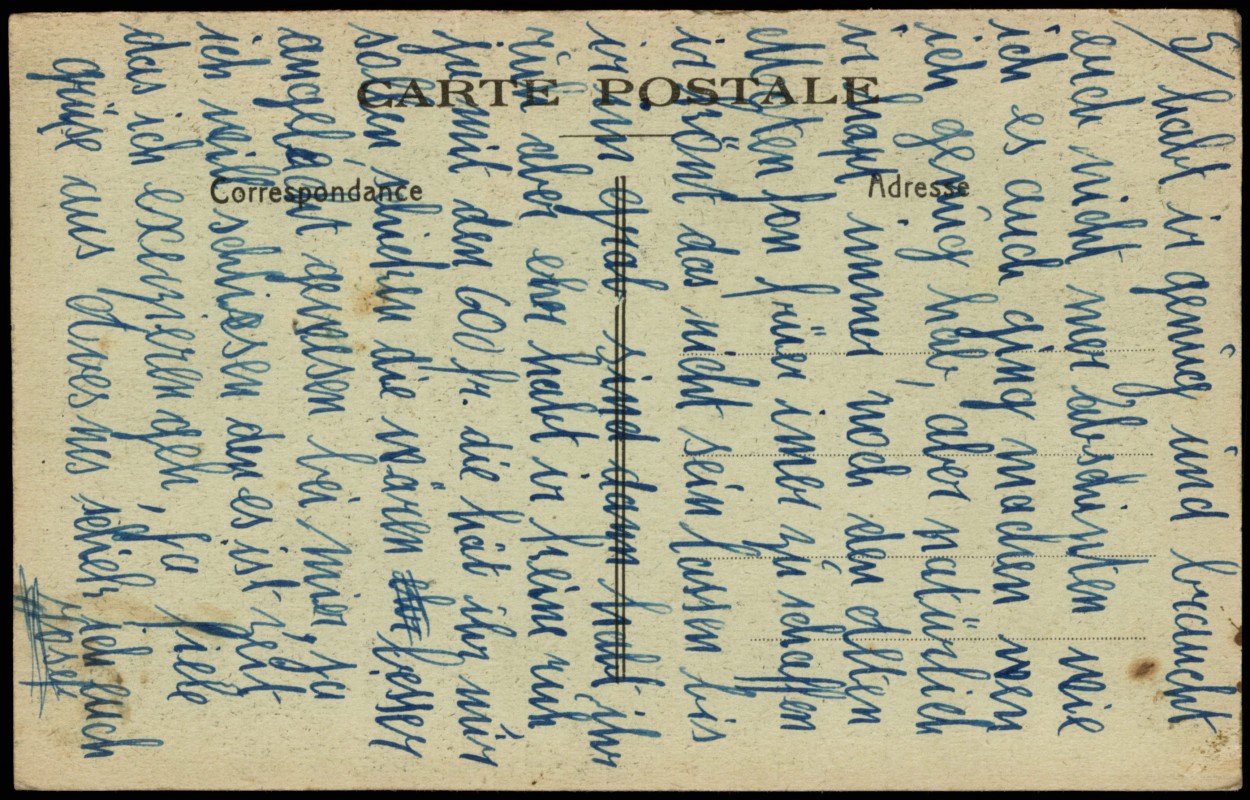 CARTE POSTALE
Correspondance
Adresse
5/ habt ir genug und braucht
euch nicht mer abschinten wie
ich es auch ging machen wen
ich genug hab, aber natürlich
ir hapt immer noch den allten
allten fon früer imer zu schaffen
ir könt das nicht sein lassen bis
ir mal sind dann habt ihr
ruh aber eher habt ir keine ruh
ju mit den 60 fr. die hät ihr mir
solen schicken die wären besser
angelegt gewesen bei mir, so
ich will schliesen den es ist zeit
das ich exerzieren geh, so fiele
grüse aus schick ich euch
Josef